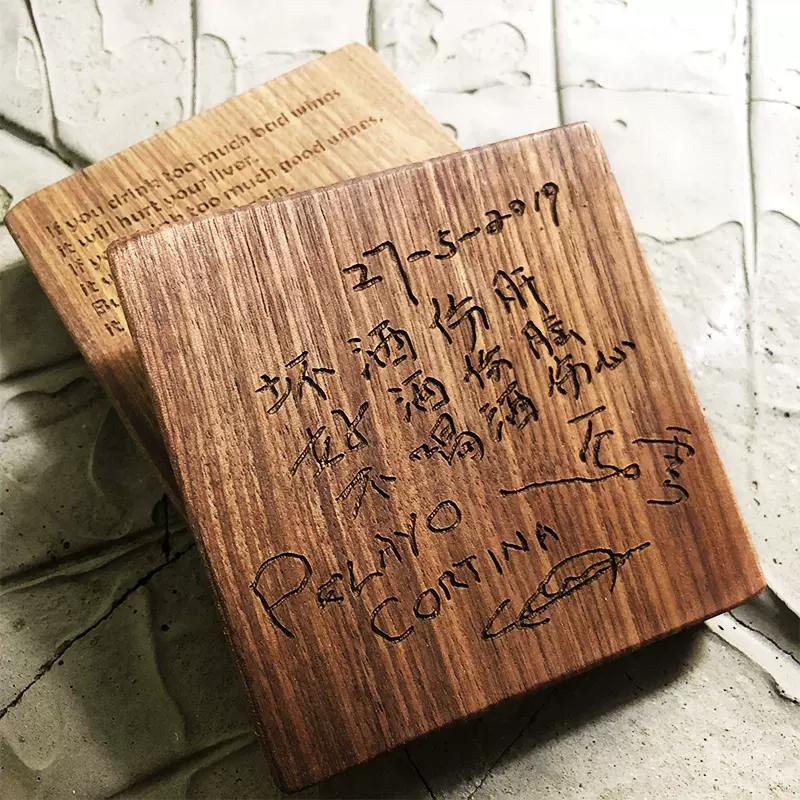 If you drink too much bad wines
it will hurt your liver.
If you too much good wines,
it
it
27-5-2019
坏 酒 伤 肝
好 酒 伤 脑
不 喝 酒 伤 心
PELAYO
CORTINA